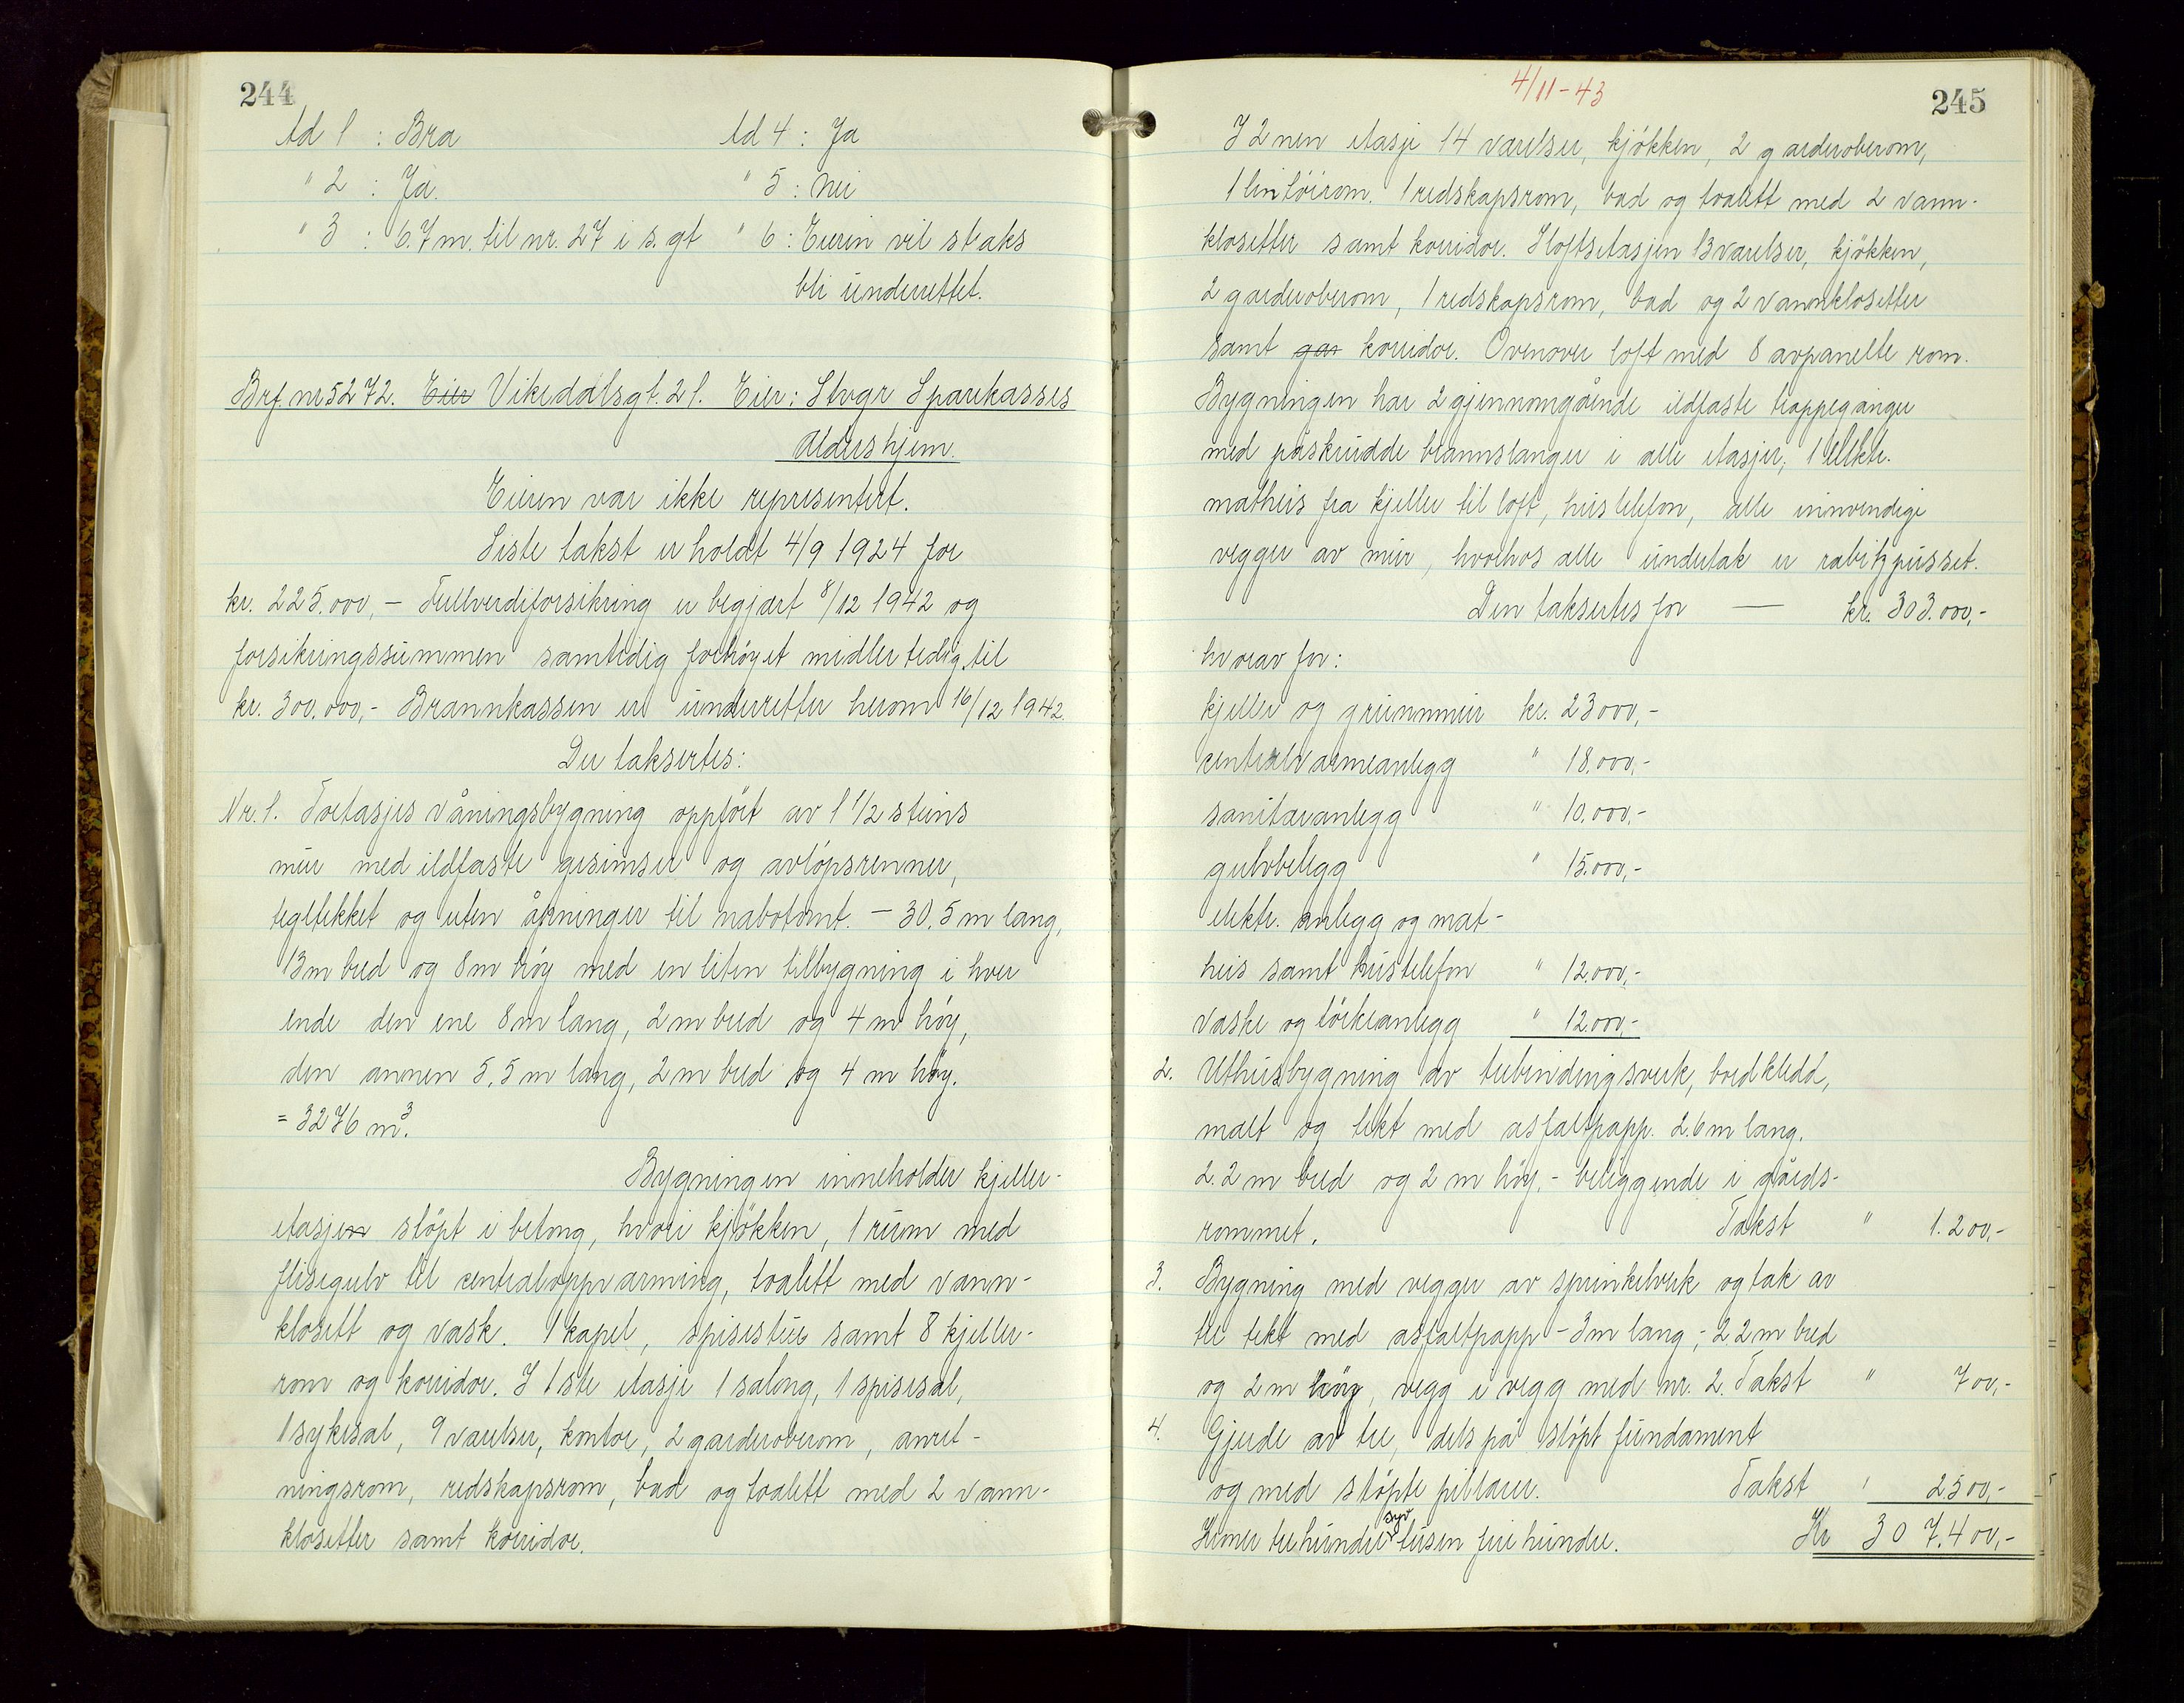 244
Ad 1 : Bra
Ad 4 : Ja
" 2 : Ja.
" 5 : Nei
" 3 : 6.7 m. til nr. 27 i s. gt
" 6 : Eieren vil straks
bli underrettet.
Brf. nr 5272. Eier Vikedalsgt. 21. Eier: Stvgr Sparekasses
Aldershjem.
Eieren var ikke representert.
Siste takst er holdt 4/9 1924 for
kr. 225.000,- Fullverdiforsikring er begjært 8/12 1942 og
forsikringssummen samtidig forhöyet midlertidig til
kr. 300.000,- Brannkassen er underretter herom 16/12 1942.
Der taksertes:
Nr. 1. Toetasjes våningsbygning oppfört av 1 1/2 steins
mur med ildfaste gesimser og avlöpsrenner,
tegltekket og uten åpninger til nabotomt. - 30.5 m lang,
13 m bred og 8 m höy med en liten tilbygning i hver
ende den ene 8 m lang, 2 m bred og 4 m höy,
den annen 5,5 m lang, 2 m bred og 4 m höy.
= 3276 m³.
Bygningen inneholder kjeller-
etasjen stöpt i betong, hvori kjökken, 1 rum med
flisegulv til centraloppvarming, toalett med vann-
klosett og vask. 1 kapel, spisestue samt 8 kjeller-
rom og korridor. I 1ste etasje 1 salong, 1 spisesal,
1 sykesal, 9 værelser, kontor, 2 garderoberom, anret-
ningsrom, redskapsrom, bad og toalett med 2 vann-
klosetter samt korridor.
4/11-43
245
I 2nen etasje 14 værelser, kjökken, 2 garderoberom,
1 lintöirom. 1 redskapsrom, bad og toalett med 2 vann-
klosetter samt korridor. I loftsetasjen 13 værelser, kjökken,
2 garderoberom, 1 redskapsrom, bad og 2 vannklosetter
samt gar korridor. Ovenover loft med 8 avpanelte rom.
Bygningen har 2 gjennomgående ildfaste trappeganger
med påskrudde brannslanger i alle etasjer, 1 elektr.
matheis fra kjeller til loft, hustelefon, alle innvendige
vegger av mur, hvorhos alle undertak er rabitzpusset.
Den taksertes for — kr. 303.000,-
hvorav for:
kjeller og grunnmur kr. 23000,-
centralvarmeanlegg " 18.000,-
sanitæranlegg " 10.000,-
gulvbelegg " 15.000,-
elektr. anlegg og mat-
heis samt hustelefon " 12000,-
vaske og törkeanlegg " 12.000,-
2. Uthusbygning av trebindingsverk, bordkledd,
malt og tekt med asfaltpapp. 2.6 m lang,
2.2 m bred og 2 m höy, - beliggende i gårds-
rommet. Takst " 1.200,-
3. Bygning med vegger av sprinkelverk og tak av
tre tekt med asfaltpapp - 3 m lang, 2.2 m bred
og 2 m höy, vegg i vegg med nr. 2. Takst " 700,-
4. Gjerde av tre, dels på stöpt fundament
og med stöpte pillarer. Takst " 2500,-
Kroner trehundre syv tusen fire hundre. Kr 307.400,-